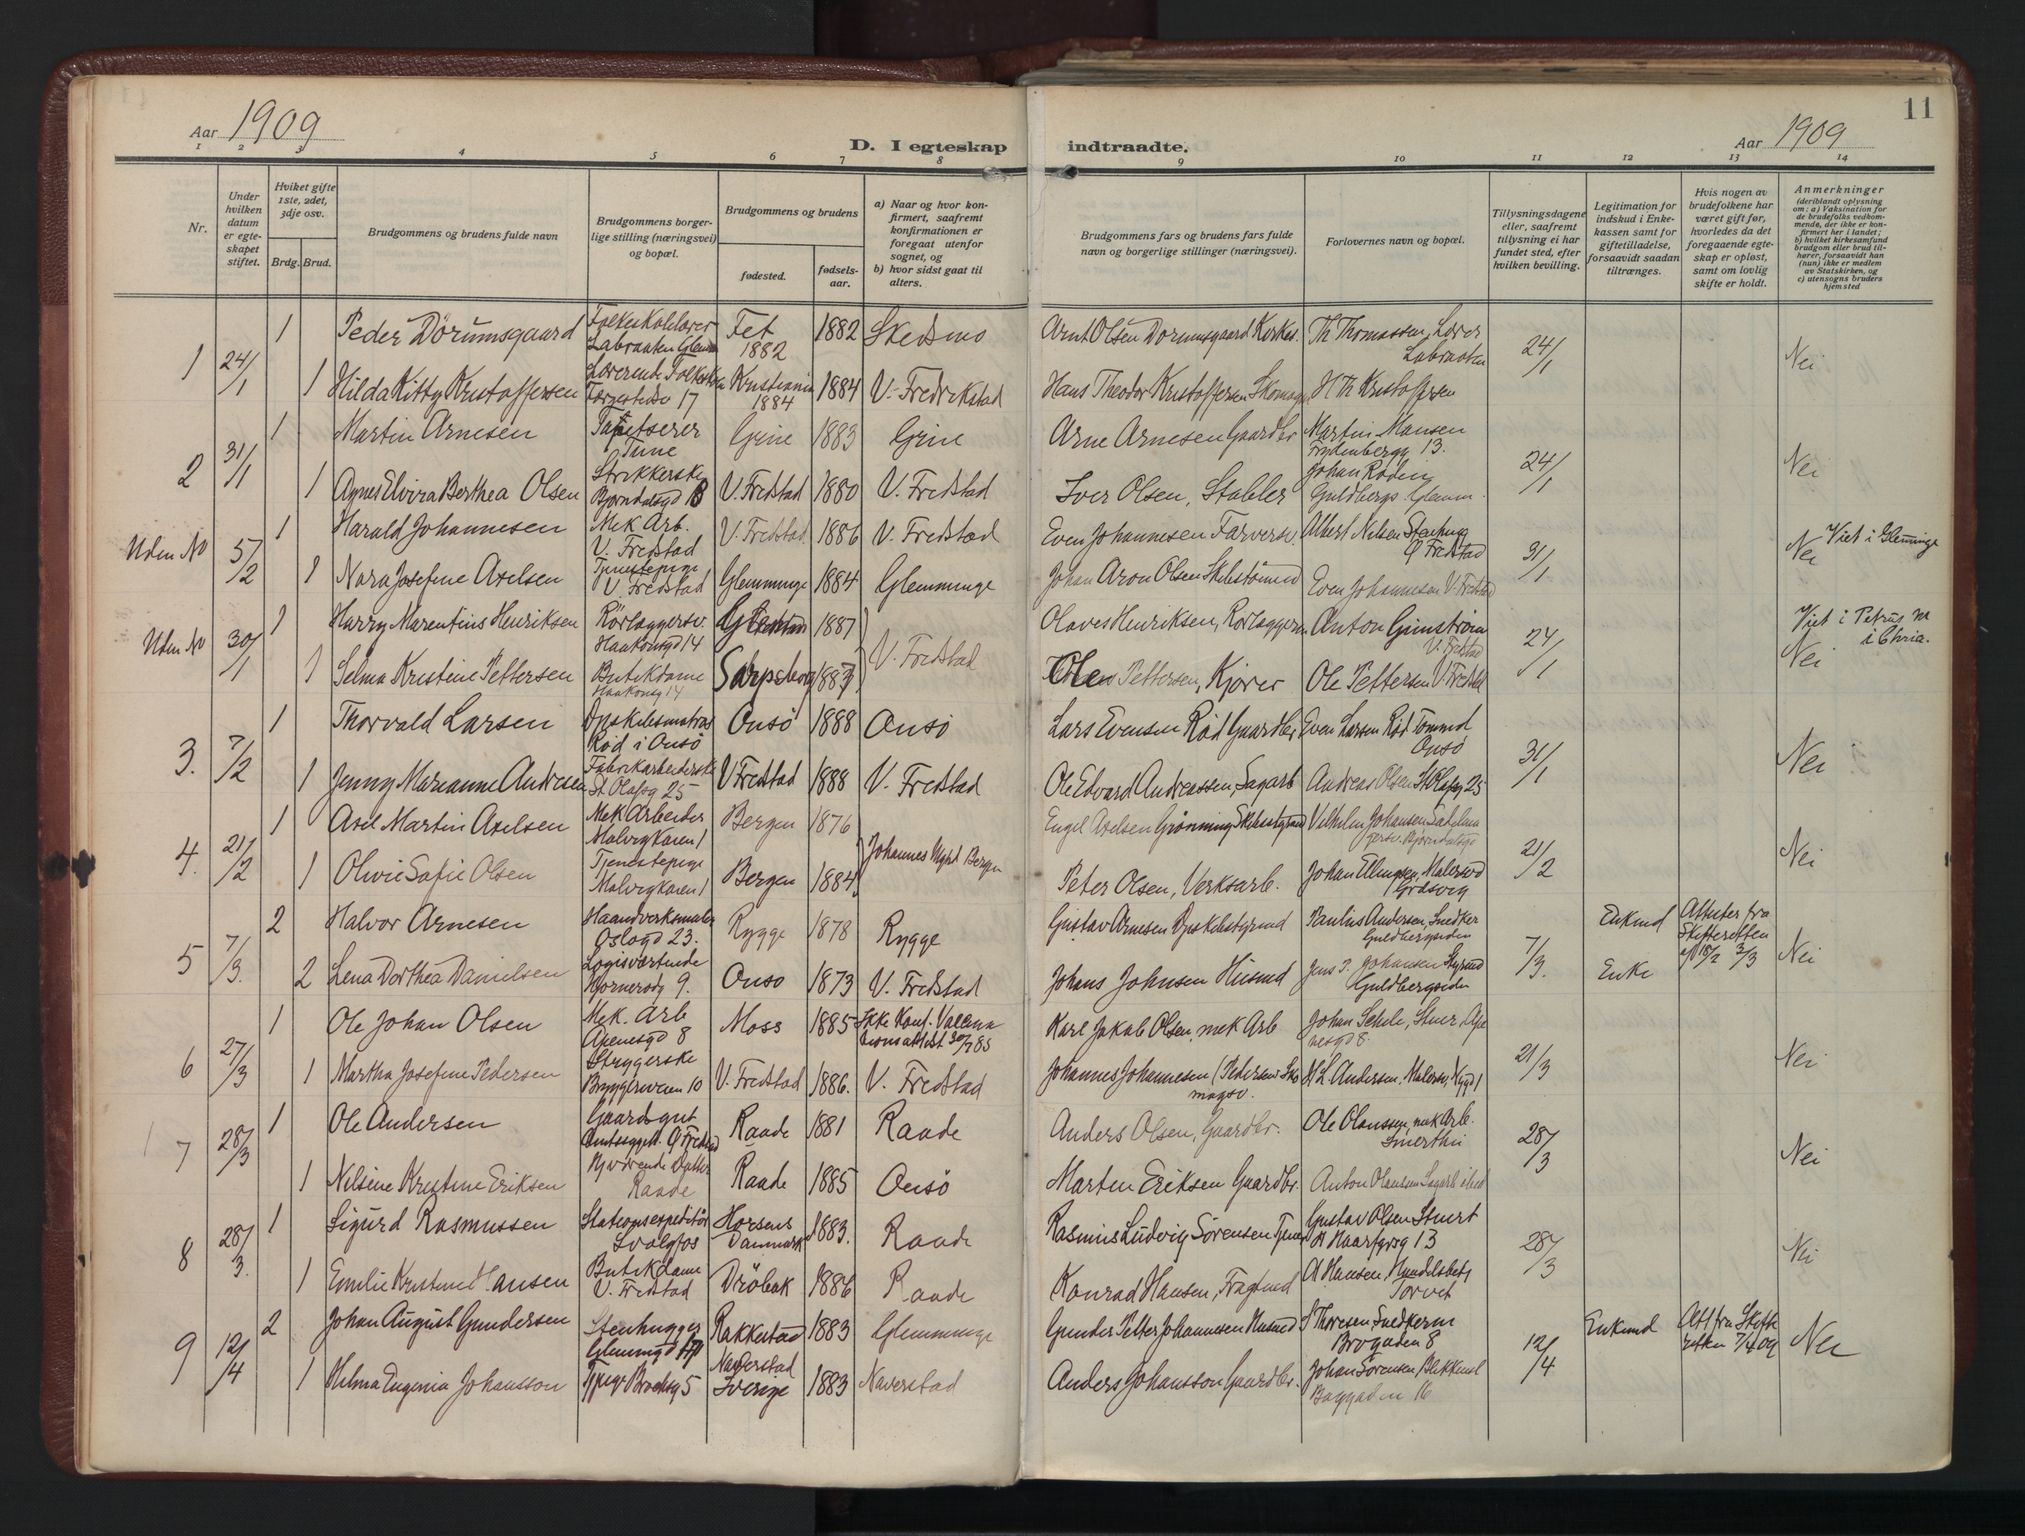 Aar 1909
D. I egteskap indtraadte.
Aar 1909
11
1 2 3 4 5 6 7 8 9 10 11 12 13 14
Nr.
Under hvilken datum er egte-skapet stiftet.
Hviket gifte 1ste, 2det, 3dje osv.
Brdg. Brud.
Brudgommens og brudens fulde navn
Brudgommens borger-lige stilling (næringsvei) og bopæl.
Brudgommens og brudens
fødested.
fødsels-aar.
a) Naar og hvor kon-firmert, saafremt konfirmationen er foregaat utenfor sognet, og
b) hvor sidst gaat til alters.
Brudgommens fars og brudens fars fulde navn og borgerlige stillinger (næringsvei).
Forlovernes navn og bopæl.
Tillysningsdagene eller, saafremt tillysning ei har fundet sted, efter hvilken bevilling.
Legitimation for indskud i Enke-kassen samt for giftetilladelse, forsaavidt saadan tiltrænges.
Hvis nogen av brudefolkene har været gift før, hvorledes da det foregaaende egte-skap er opløst, samt om lovlig skifte er holdt.
Anmerkninger (deriblandt oplysning om: a) Vaksination for de brudefolks vedkom-mende, der ikke er kon-firmert her i landet; b) hvilket kirkesamfund brudgom eller brud til-hører, forsaavidt han (hun) ikke er medlem av Statskirken, og c) utensogns bruders hjemsted
1 24/1 1 Peder Dörumsgaard Folkeskolelærer Labraaten Glem Fet 1882 1882 Skedsmo Arnt Olsen Dorumsgaard Kirkes. Th Thomassen, Lærer Labraaten 24/1 Nei
1 Hilda Kitty Kristoffersen Lærerinde Folkesk Færgestedsv 17 Kristiania 1884 1884 V. Fredrikstad Hans Theodor Kristoffersen Skomag H Th Kristoffersen
2 31/1 1 Martin Arnesen Tapetserer Tune Grine 1883 Grine Arne Arnesen Gaardbr Martin Hansen Frydenbergg 13. 24/1 Nei
1 Agnes Elvira Berthea Olsen Strikkerske Bjorndalsgd 8 V. Fredstad 1880 V. Fredstad Iver Olsen, Stabler Johan Roden Guldbergs. Glemm.
Uden No 5/2 1 Harald Johannesen Mek Arb. V. Fredstad V. Fredstad 1886 V. Fredstad Even Johannesen Farversv. Albert Nilsen Stenhug Ø Fredstad 31/1 Nei Viet i Glemminge
1 Nora Josefine Axelsen Tjenestepige V. Fredstad Glemminge 1884 Glemminge Johan Aron Olsen Skibstømmd Even Johannesen V. Fredstad
Uden No 30/1 1 Harry Marentius Henriksen Rörlæggersv. Haakonsgd 14 1887 V. Fredstad Olaves Henriksen, Rorlæggerm Anton Grimstrøm V. Fredstad 24/1 Nei Viet i Petrus m i Chria.
1 Selma Kristine Pettersen Butikdame Haakonsg 14 Sarpsborg 1887 Pettersen, Kjører Ole Pettersen V. Fredstad
3. 7/2 1 Thorvald Larsen Dpskibsmatros Rød i Onsö Onsö 1888 Onsö Lars Evensen Rød Gaardbr Even Larsen Rød Tømmd Onsø 31/1 Nei
1 Jenny Marianne Andresen Fabrikarbeiderske St Olafsg 25 V Fredstad 1888 V. Fredstad Ole Edvard Andreassen, Sagarb Andreas Olsen St Olafsg 25
4. 21/2 1 Axel Martin Axelsen Mek Arbeider Malvigkaren 1 Bergen 1876 Johannes Mghd Bergen Engel Axelsen Grønning Skibsstyrmd Vilhelm Johansen Sadelma gersv. Bjørndalsgd 21/2 Nei
1 Olivie Sofie Olsen Tjenestepige Malvigkaren 1 Bergen 1884 Peter Olsen, Verksarb. Johan Ellingsen, Malersvd Grdsvig
5 7/3. 2 Halvor Arnesen Haandverksmaler Oslogd 23. Rygge 1878 Rygge Gustav Arnesen Dpskibstyrmd Paulius Andersen, Snedker Guldbergsiden 7/3. Enkmd Attester fra Skifteretten af 18/2 3/3 Nei
2 Lena Dorthea Danielsen Logisværtinde Hjornerødg 9. Onso 1873 V. Fredstad Johans Johnsen Husmd Jens P. Johansen Styrmd Guldbergsiden Enke
6 27/3 1 Ole Johan Olsen Mek. Arb Apenesgd 8 Moss 1885 Ikke Konf. Vaccina tionsattest 30/7 85 Karl Jakob Olsen, mek Arb Johan Schele, Stuer, Ape nesgd 8. 21/3 Nei
1 Martha Josefine Pedersen Strygerske Bryggeriveien 10 V. Fredstad 1886. V. Fredstad Johannes Johannesen (Pedersen) Sko magsv. H L Andersen, Malersv, Nygd 1
7 28/3 1 Ole Andersen Gaardsgut Raade 1881 Raade Anders Olsen, Gaardbr. Ole Olaussen, mek Arb. Smerthu 28/3 Nei
1 Nilsine Kristine Eriksen Hjvärende Datter Raade Raade 1885 Onsö Marten Eriksen Gaardbr. Anton Olaussen Sagarb
8 28/3. 1 Sigurd Rasmussen Stationsexpeditör Svælgfos Horsens Danmark 1883. Raade Rasmus Ludvig Sörensen Gustav Olsen Stuert H Haarfgrsg 13 28/3 Nei
1 Emilie Kristine Hansen Butikdame V. Fredstad Dröbak 1886 Raade Konrad Hansen, Fragtmd H Hansen, Handelsbetj Torvet
9 12/4 2 Johan August Gundersen Stenhugger Rakkestad 1883 Glemminge Gunder Petter Johannesen Husmd S Thoresen Snedkerm Brogaden 8 12/4 Enkmd Att fra Skifte retten 7/4 09 Nei
1 Hilma Eugenia Johansson Tjpige Brodsg 5 Naverstad Sverige 1883 Naverstad Anders Johansson Gaardbr. Johan Sörensen, Blikkensl Baggaden 16